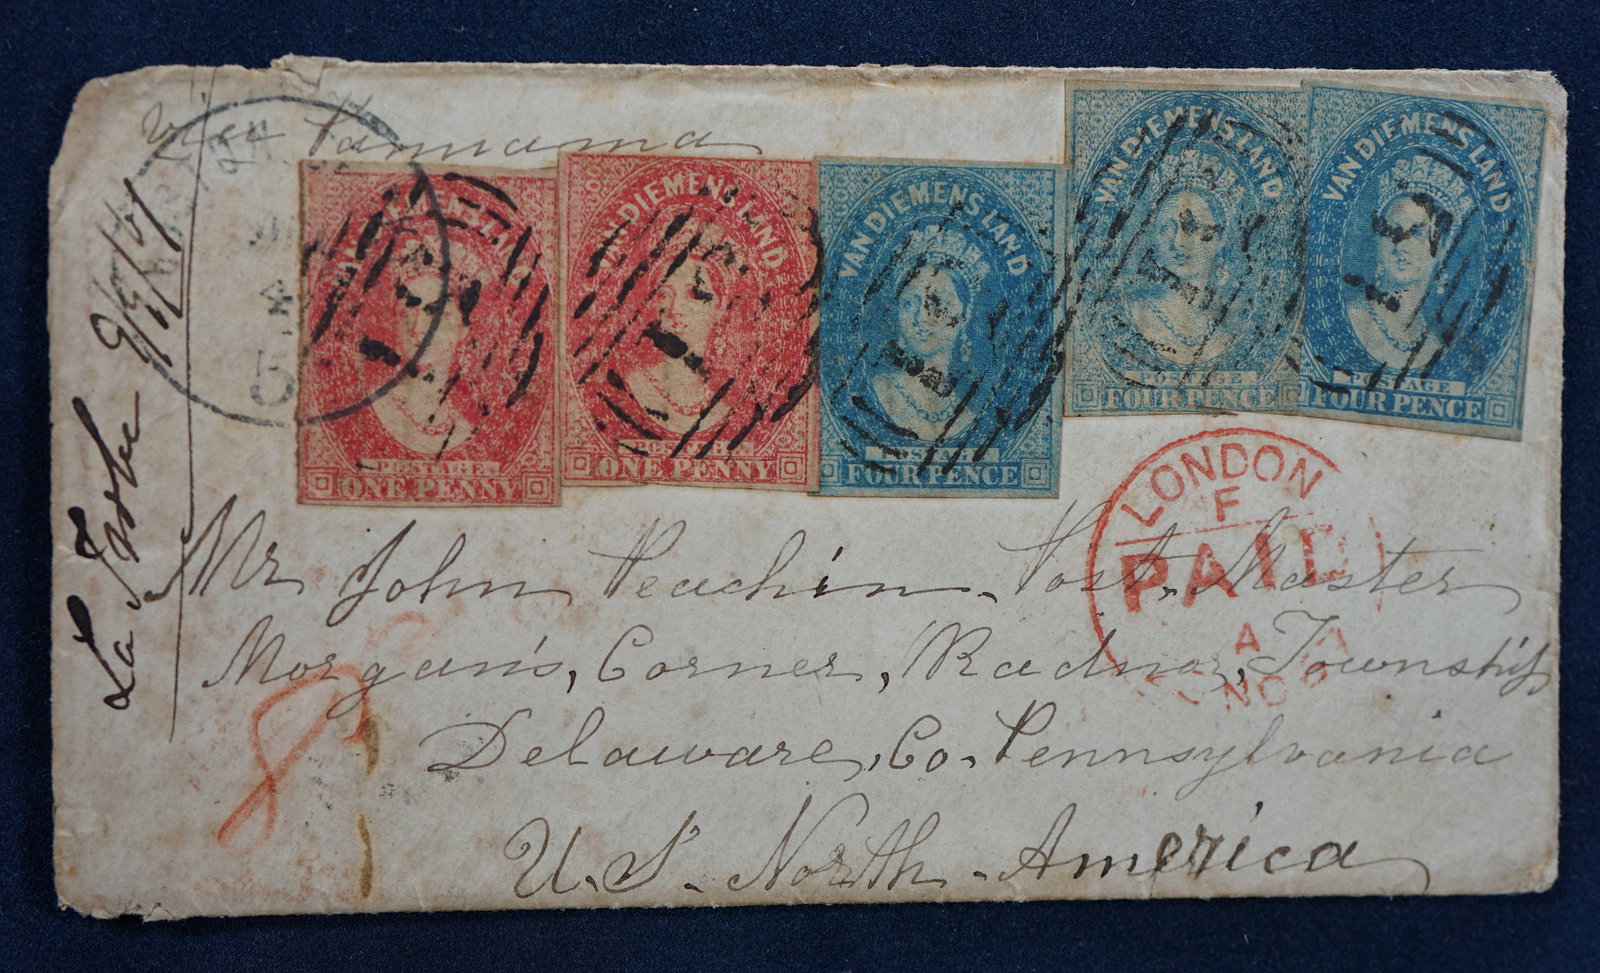 Via Pannama
VAN DIEMENS LAND
POSTAGE
ONE PENNY
VAN DIEMENS LAND
POSTAGE
ONE PENNY
VAN DIEMENS LAND
POSTAGE
FOUR PENCE
VAN DIEMENS LAND
POSTAGE
FOUR PENCE
VAN DIEMENS LAND
POSTAGE
FOUR PENCE
5
LONDON
F
PAID
A
La Trobe
Mr John Peachin. Post. Master
Morgan's, Corner, Radnor, Township
Delaware, Co. Pennsylvania
U. S. North. America